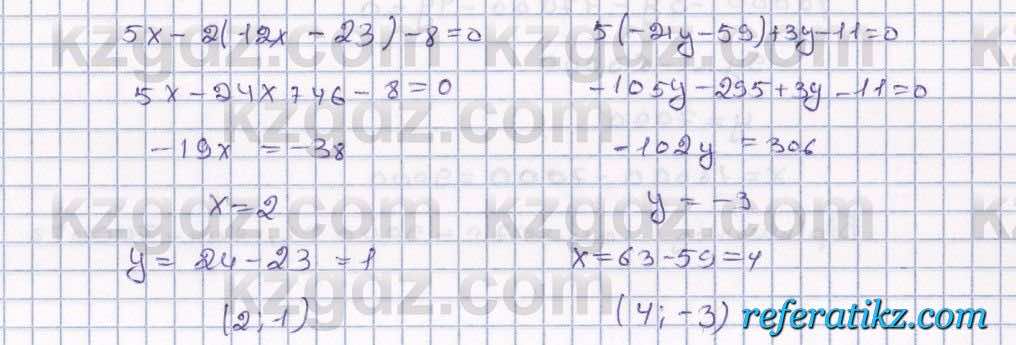 5x - 2(12x - 23) - 8 = 0
5x - 24x + 46 - 8 = 0
-19x = -38
x = 2
y = 24 - 23 = 1
(2; 1)
5(-21y - 59) + 3y - 11 = 0
-105y - 295 + 3y - 11 = 0
-102y = 306
y = -3
x = 63 - 59 = 4
(4; -3)
kzgdz.com
kzgdz.com
kzgdz.com
kzgdz.com
kzgdz.com
kzgdz.com
referatikz.com